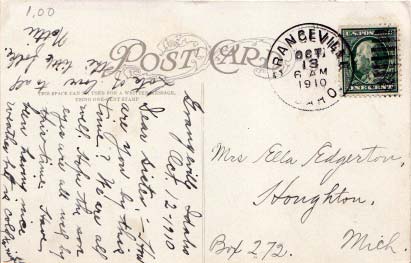 1,00
POST CARD
THIS SPACE CAN BE USED FOR A WRITTEN MESSAGE,
USING ONE-CENT STAMP
GRANGEVILLE
OCT
13
6 AM
1910
IDAHO
U.S. POSTAGE
ONE CENT
Grangeville Idaho
Oct 12-1910
Dear Sister:- How
are you by this
time? We are all
well. Hope the
are all well by
time. have
been having nice
weather but is cold
Lots of love to all
the little folks
Nettie
Mrs Ella Edgerton,
Houghton,
Box 272. Mich.